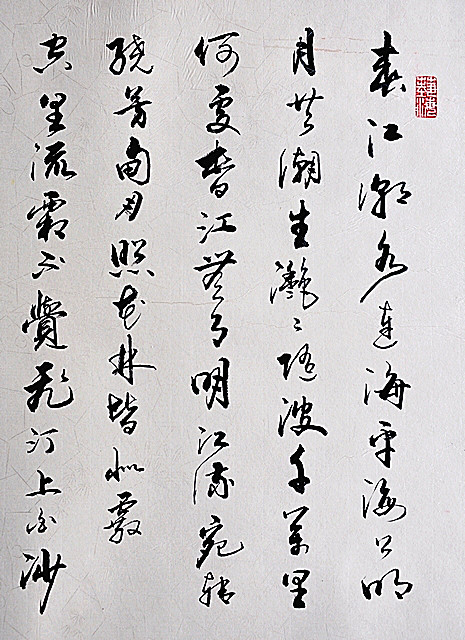 春江潮水連海平海上明
月共潮生灩〻隨波千萬里
何處春江無月明江流宛轉
繞芳甸月照花林皆似霰
空里流霜不覺飛汀上白沙